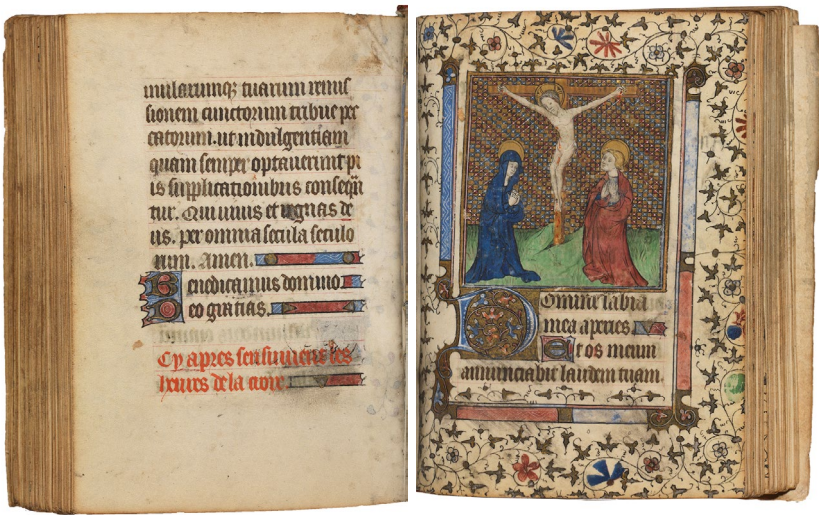 mularumq; tuarum remis
sionem cunctorum tribue pec
catorum. ut indulgentiam
quam semper optaverunt pi
is supplicationibus consequ
tur. Qui vivis et regnas de
us. per omnia secula seculo
rum. Amen.
Benedicamus domino
Deo gratias.
Cy apres sensuivent les
heures de la croix
Domine labia
mea aperies
Et os meum
annunciabit laudem tuam.